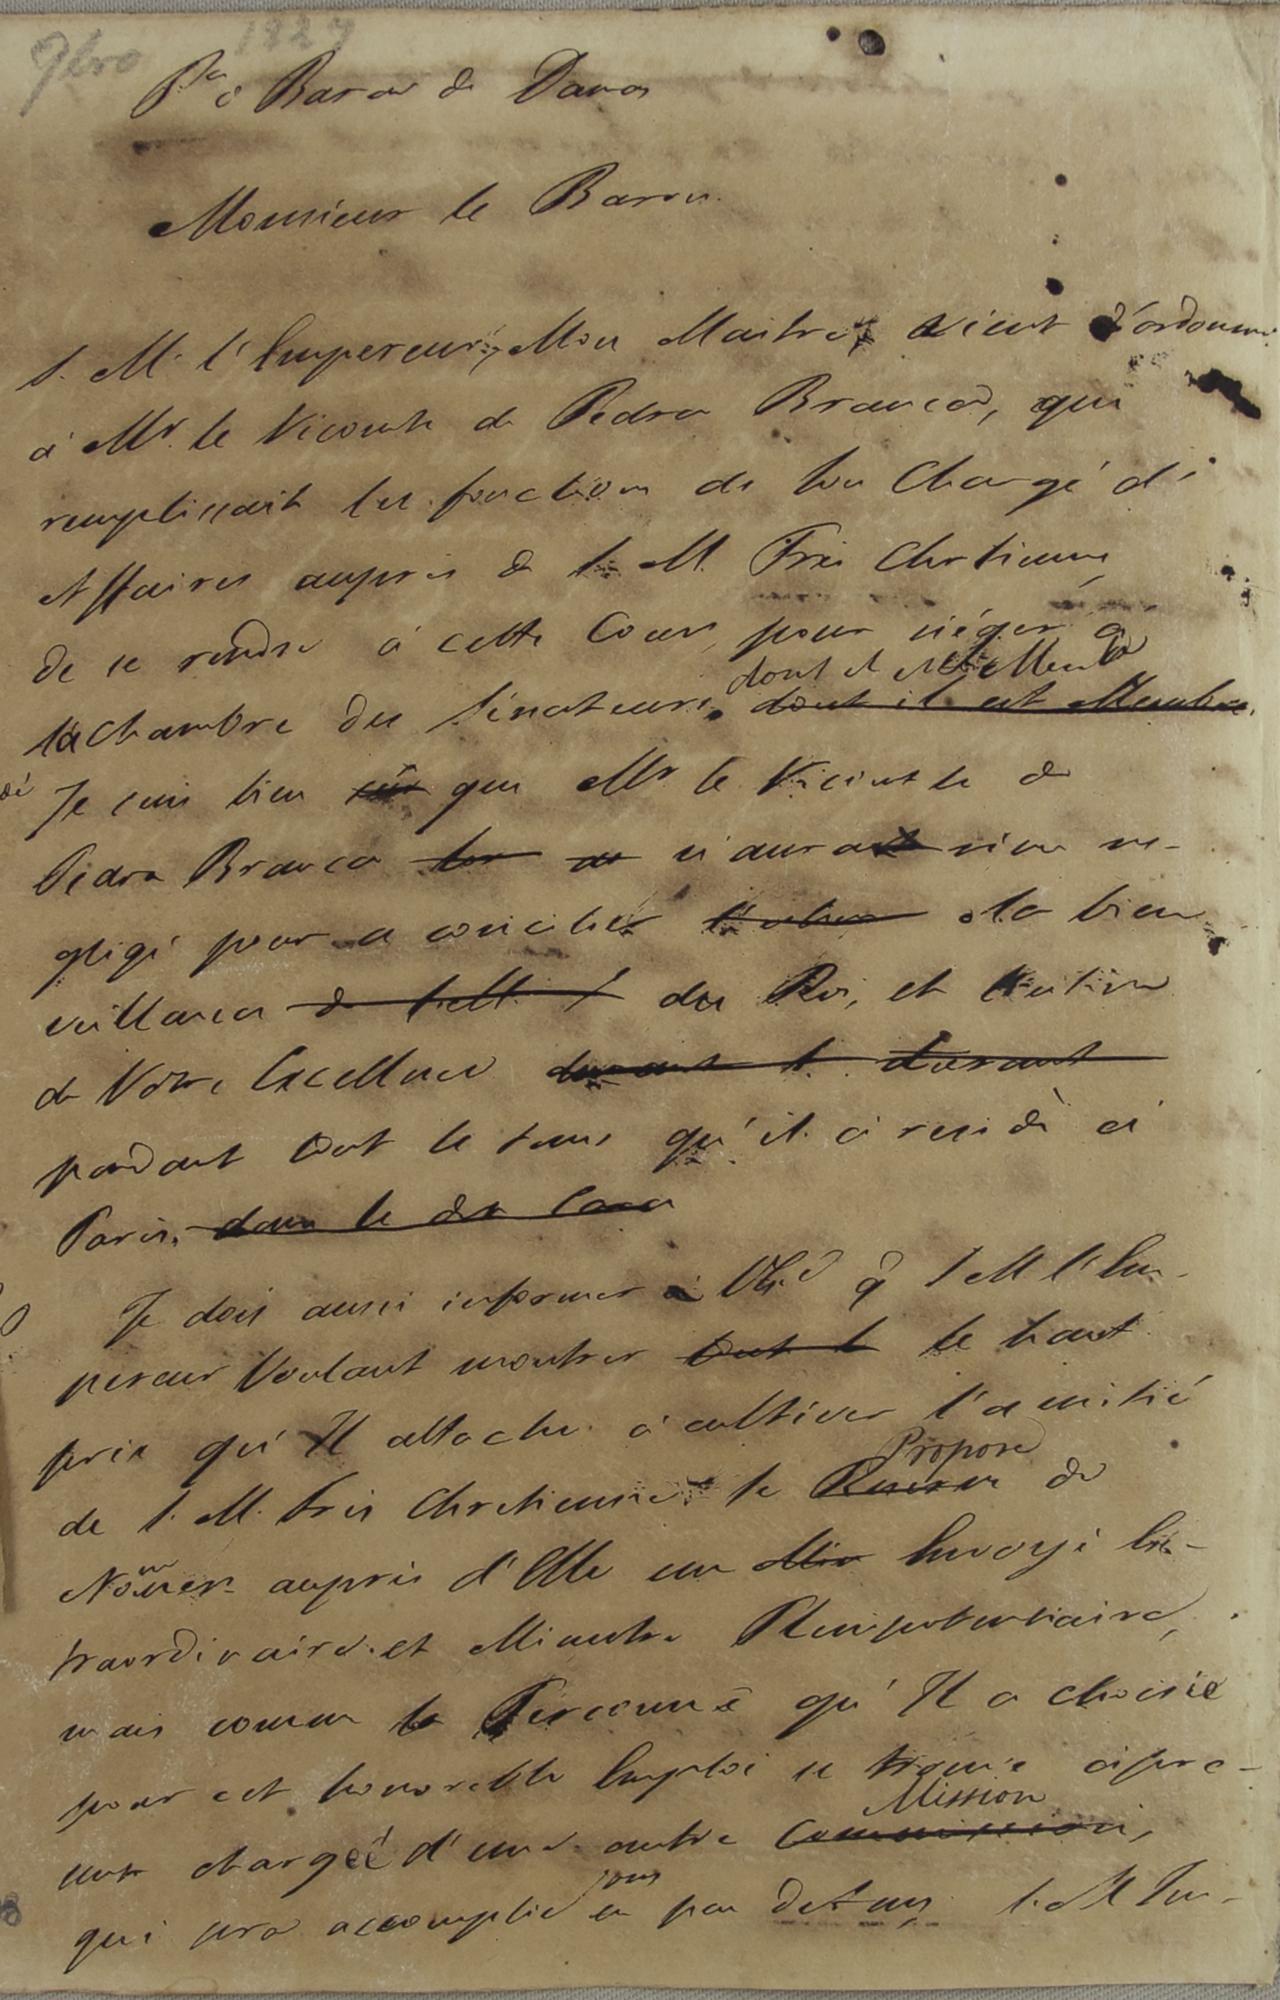 1827
Pa o Baron de Damas
Monsieur le Baron.
S. M. l'Empereur, Mon Maitre, vient d'ordonner
à Mr. le Vicomte de Pedra Branca, qui
remplissait les fonctions de Son Chargé d'
Affaires aupres de S. M. Très Chrtienne,
de se rendre à cette Cour, pour siéger à
la Chambre des Sénateurs, dont il est Membre dont il est Membre.
Je suis bien sûr que Mr. le Vicomte de
Pedra Branca n'aura rien ne-
gligé pour se concilier l'estime la bien
veillance de S. M. T du Roi, et l'estime
de Votre Excellence durant
pendant tout le tems qu'il a residé à
Paris,
Je dois aussi informer à V. Exce. q̃ S M l'Em-
pereur Voulant montrer tout l le haut
prix qu'Il attache à cultiver l'amitié
de S. M. Très Chretienne, se Reserve Propose de
Nommer aupris d'Elle un Min Envoyé Ex-
traordinaire et Ministre Plenipotentiaire,
mais comme la Personne qu' Il a choisie
pour cet honorable Emploi se trouve àpre-
sent chargée d'une autre Commission, Mission
qui sera accomplie sous en peu de tems S. M Im-